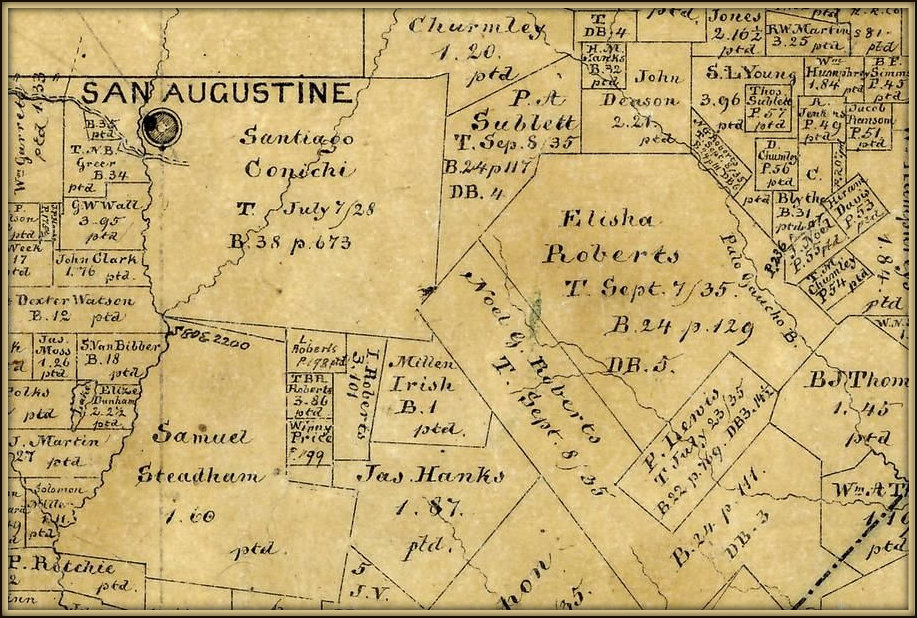 Churmley
1.20.
ptd
T.
DB.4
ptd.
Jones
2.16½
ptd
R.W. Martin
3.25 ptd.
ptd
S 81
ptd.
H.M.
Hanks
B.32
ptd
John
Deason
2.21.
ptd.
S.L Young
3.96
ptd
Thos
Sublett
P.57
ptd
Wm
Humphrey
1.84 ptd
B F.
Simms
P.45
ptd
R.
Jenkins
P.49
ptd
Jacob
Ransom
P.51.
ptd
SAN AUGUSTINE
Wm Garrett
ptd 1.33
B.35
ptd
T.N.B.
Greer
B 34
ptd
Santiago
Conichi
T. July 7/28
B.38 p.673
P. A
Sublett
T. Sep. 8/35
B.24 p 117
DB. 4.
D.
Chumley
P.56
ptd
C.
Blythe
B.31
ptd
ptd
Hiram
Davis
P.53
ptd
J. Noel
P.55 ptd
P.236
T.M.
Chumley
P54 ptd
1.84.
ptd
G.W Wall
3.95
ptd
ptd
Week
17
td
John Clark
1.76 ptd.
Elisha
Roberts
T. Sept. 7/35.
B.24 p.129
DB.5.
Palo Gaucho B.
Dexter Watson
B.12 ptd
S80E2200
Noel G. Roberts
T. Sept. 8/35
W.N.
Jas.
Moss
1.26
ptd
S.VanBibber
B.18
ptd
L.
Roberts
P.198 ptd
T.B.R.
Roberts
3-86
ptd
Winny
Price
P.199
I. Roberts
3.101
Millen
Irish
B.1
ptd.
olks
ptd
Luke
Elize
Dunham
2.2½
ptd
B.J. Thom
1.45
ptd
P. Lewis
T. July 23/35
B.22 p.769. DB3.14½
J. Martin
27
ptd
Samuel
Steadham
1.60
ptd.
Jas. Hanks
1.87.
ptd.
Solomon
Miller
P.11
ptd
Wm A T
1.10
ptd
B.24. p 111.
DB-3
P. Ritchie
2
ptd.
inn
5
J.V.
hon
35.